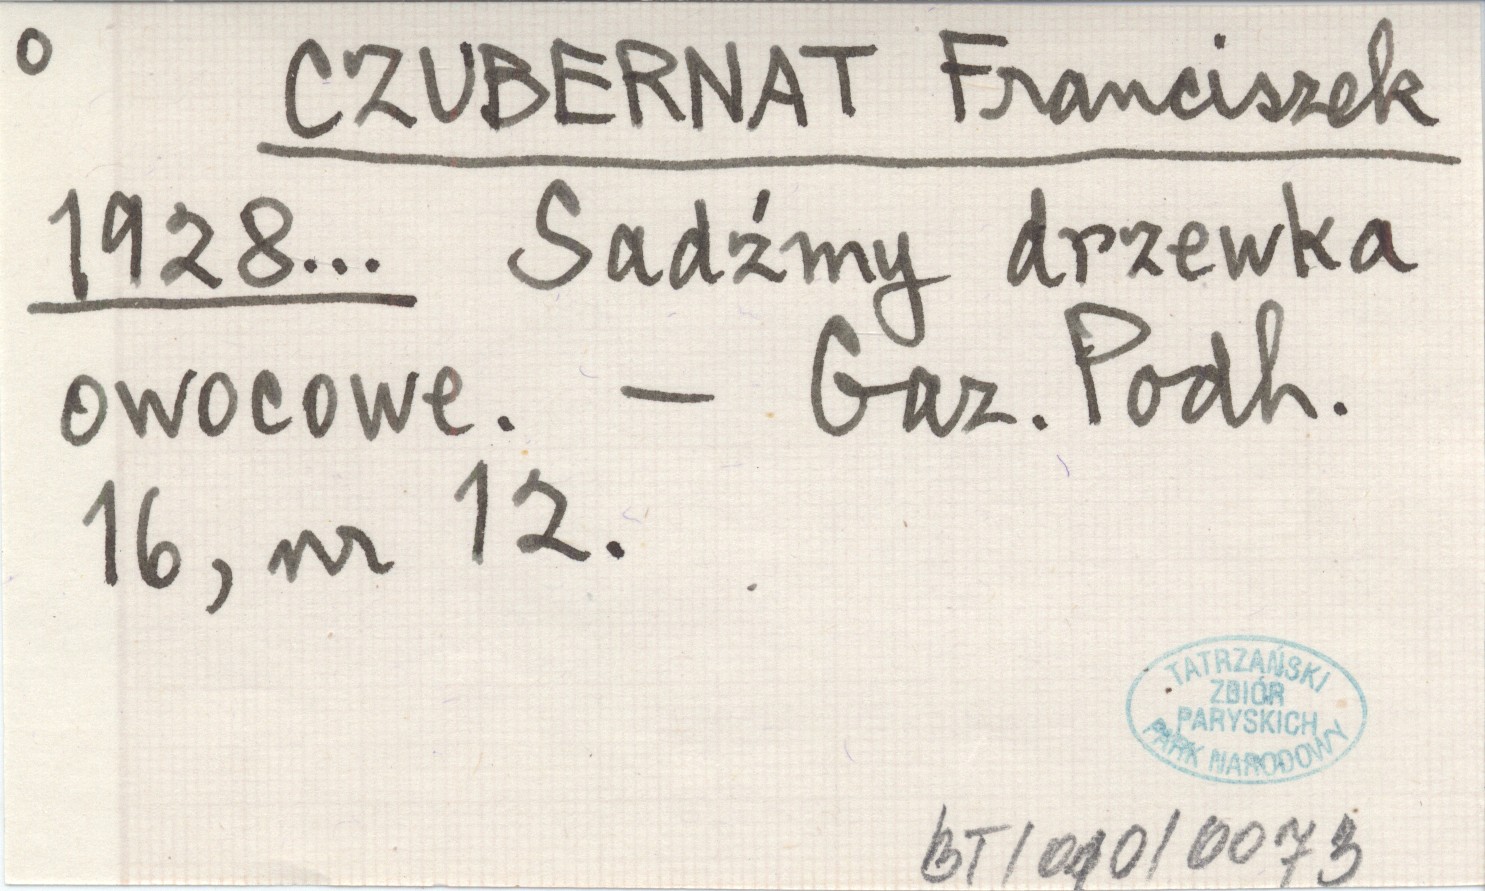 o
CZUBERNAT Franciszek
1928... Sadźmy drzewka
owocowe. — Gaz. Podh.
16, nr 12.
TATRZAŃSKI
ZBIÓR
PARYSKICH
PARK NARODOWY